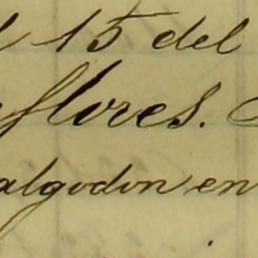 15 del
flores.
algodon en